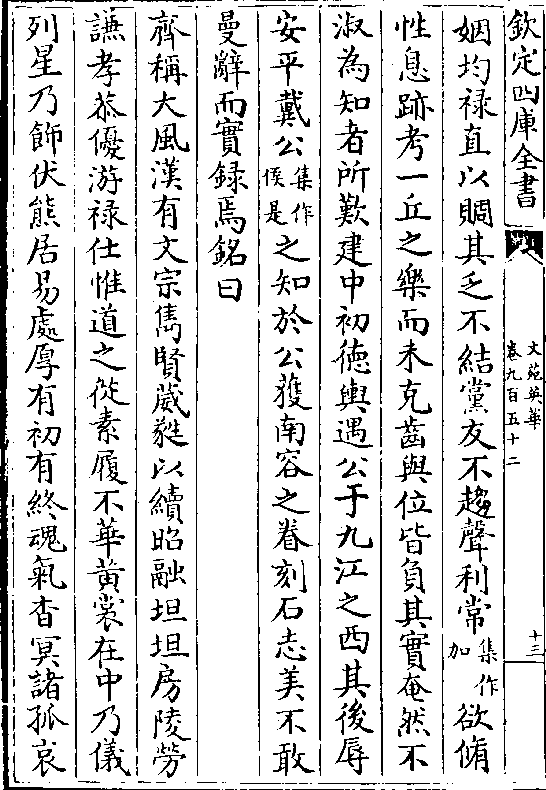 欽定四庫全書
文苑英華
卷九百五十二
十三
姻均禄直以賙其乏不結黨友不趨聲利常集作加欲脩
性息跡考一丘之樂而未克齒與位皆負其實奄然不
淑為知者所歎建中初徳輿遇公于九江之西其後辱
安平戴公集作侯是之知於公獲南容之眷刻石志美不敢
曼辭而實録焉銘曰
齊稱大風漢有文宗雋賢葳蕤以續昭融坦坦房陵勞
謙孝恭優游禄仕惟道之從素履不華黄裳在中乃儀
列星乃飾伏熊居易處厚有初有終魂氣杳冥諸孤哀